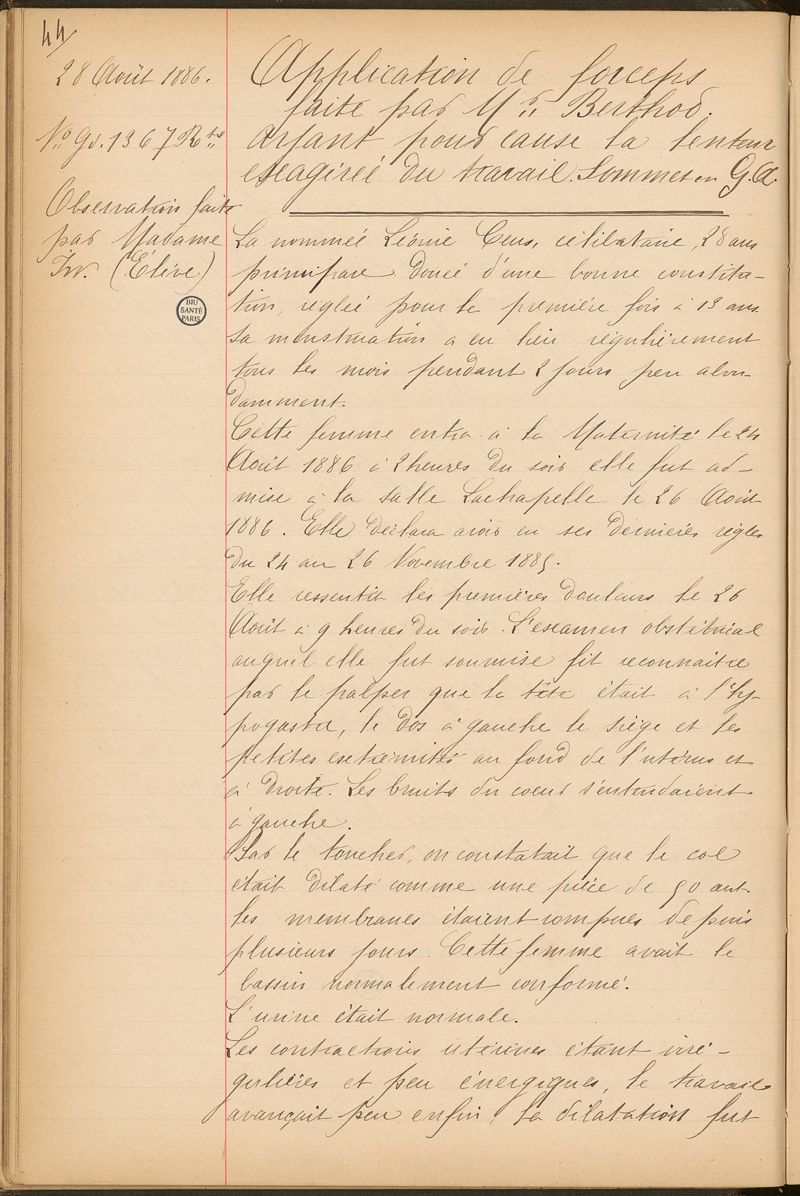 44
28 Août 1886.
No Gd. 1367 Rte
Observation faite
par Madame
(Elève)
BIU
SANTÉ
PARIS
Application de forceps
faite par Mr Berthod.
ayant pour cause la lenteur
exagérée du travail. Sommet en G.A.
La nommée Léonie Ceus, célibataire, 28 ans
primipare douée d'une bonne constitu-
tion, réglée pour la première fois à 13 ans
sa menstruation a eu lieu régulièrement
tous les mois pendant 2 jours peu abon-
damment.
Cette femme entra à la Maternité le 24
Août 1886 à 2 heures du soir elle fut ad-
mise à la salle Lachapelle le 26 Août
1886. Elle déclara avoir eu ses dernières règles
du 24 au 26 Novembre 1885.
Elle ressentit les premières douleurs le 26
Août à 9 heures du soir. L'examen obstétrical
auquel elle fut soumise fit reconnaitre
par le palper que la tête était à l'hy-
pogastre, le dos à gauche le siège et les
petites extrémités au fond de l'utérus et
à droite. Les bruits du coeur s'entendaient
à gauche.
Par le toucher, on constatait que le col
était dilaté comme une pièce de 50 cent
les membranes étaient rompues depuis
plusieurs jours. Cette femme avait le
bassin normalement conformé.
L'urine était normale.
Les contractions utérines étant irré-
gulières et peu énergiques, le travail
avançait peu, enfin, la dilatation fut